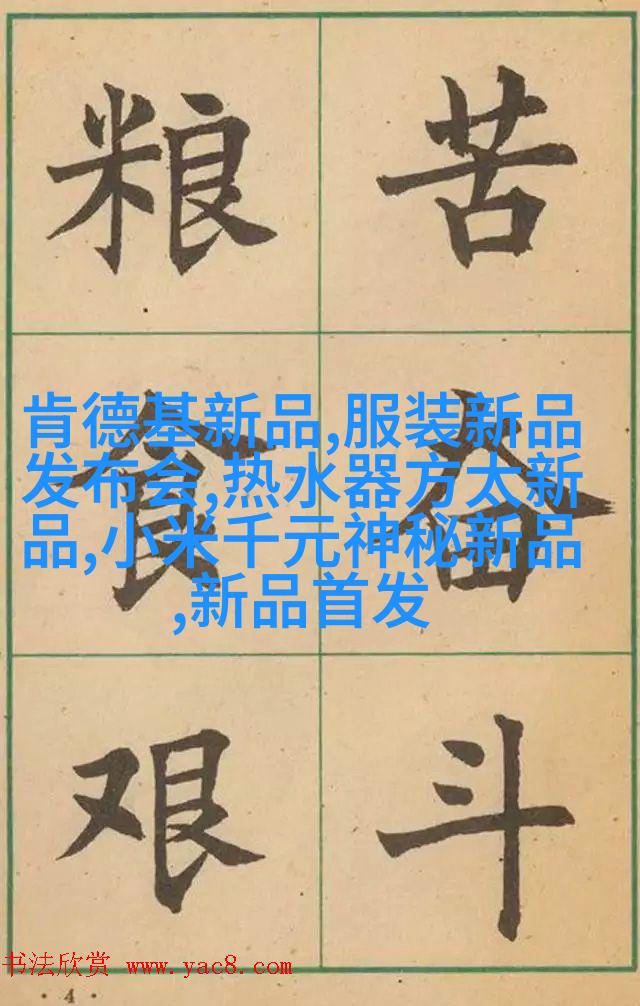 粮 苦
食 奋
艰 斗
肯德基新品,服装新品
发布会,热水器方太新
品,小米千元神秘新品
,新品首发
书法欣赏 www.yac8.com
· 4 ·